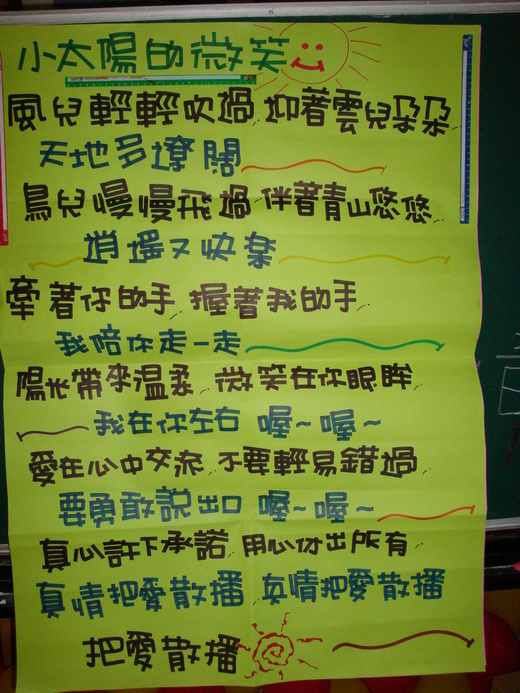 小太陽的微笑
風兒輕輕吹過 迎著雲兒朵朵
天地多遼闊
鳥兒慢慢飛過 伴著青山悠悠
逍遙又快樂
牽著你的手 握著我的手
我陪你走一走
陽光帶來溫柔 微笑在你眼眸
我在你左右 喔~喔~
愛在心中交流 不要輕易錯過
要勇敢說出口 喔~喔~
真心許下承諾 用心付出所有
真情把愛散播 真情把愛散播
把愛散播